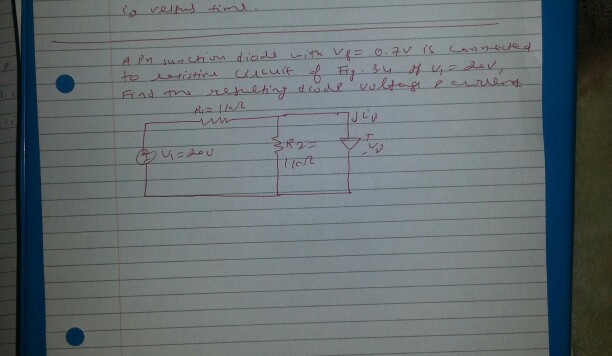 is versus time.
A Pn junction diode with Vf = 0.7V is connected
to resistive circuit of Fig. 3.4 If V1 = 20V,
Find the resulting diode voltage & current
R1 = 1kΩ
iD
V1 = 20V
R2 =
1kΩ
+
VD
-